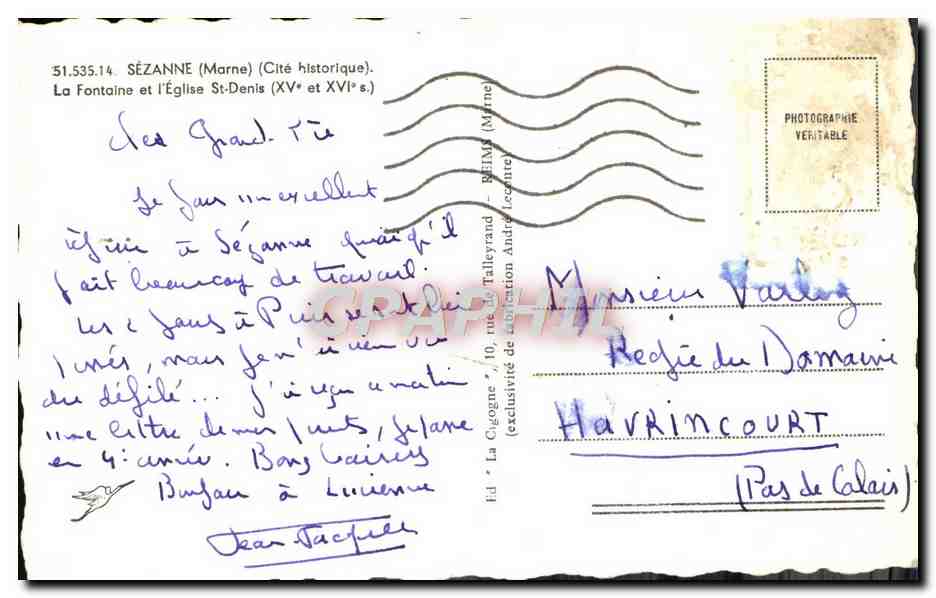 51.535.14. SÉZANNE (Marne) (Cité historique).
La Fontaine et l'Église St-Denis (XVe et XVIe s.)
Grand-Père
Je fais un excellent
séjour à Sézanne quoiqu'il
fait beaucoup de travail.
Les 2 jours à Paris se sont bien
passés, mais je n'ai rien vu
du défilé... J'ai reçu ce matin
une lettre de mes parents, je passe
en 4e année. Bons baisers
Bonjour à Lucienne
Jean-Jacques
Ed " La Cigogne ", 10, rue de Talleyrand - REIMS (Marne)
(exclusivité de fabrication André Leconte)
PHOTOGRAPHIE
VERITABLE
Monsieur
Régie du Domaine
HAVRINCOURT
(Pas de Calais)
GRAPHIL